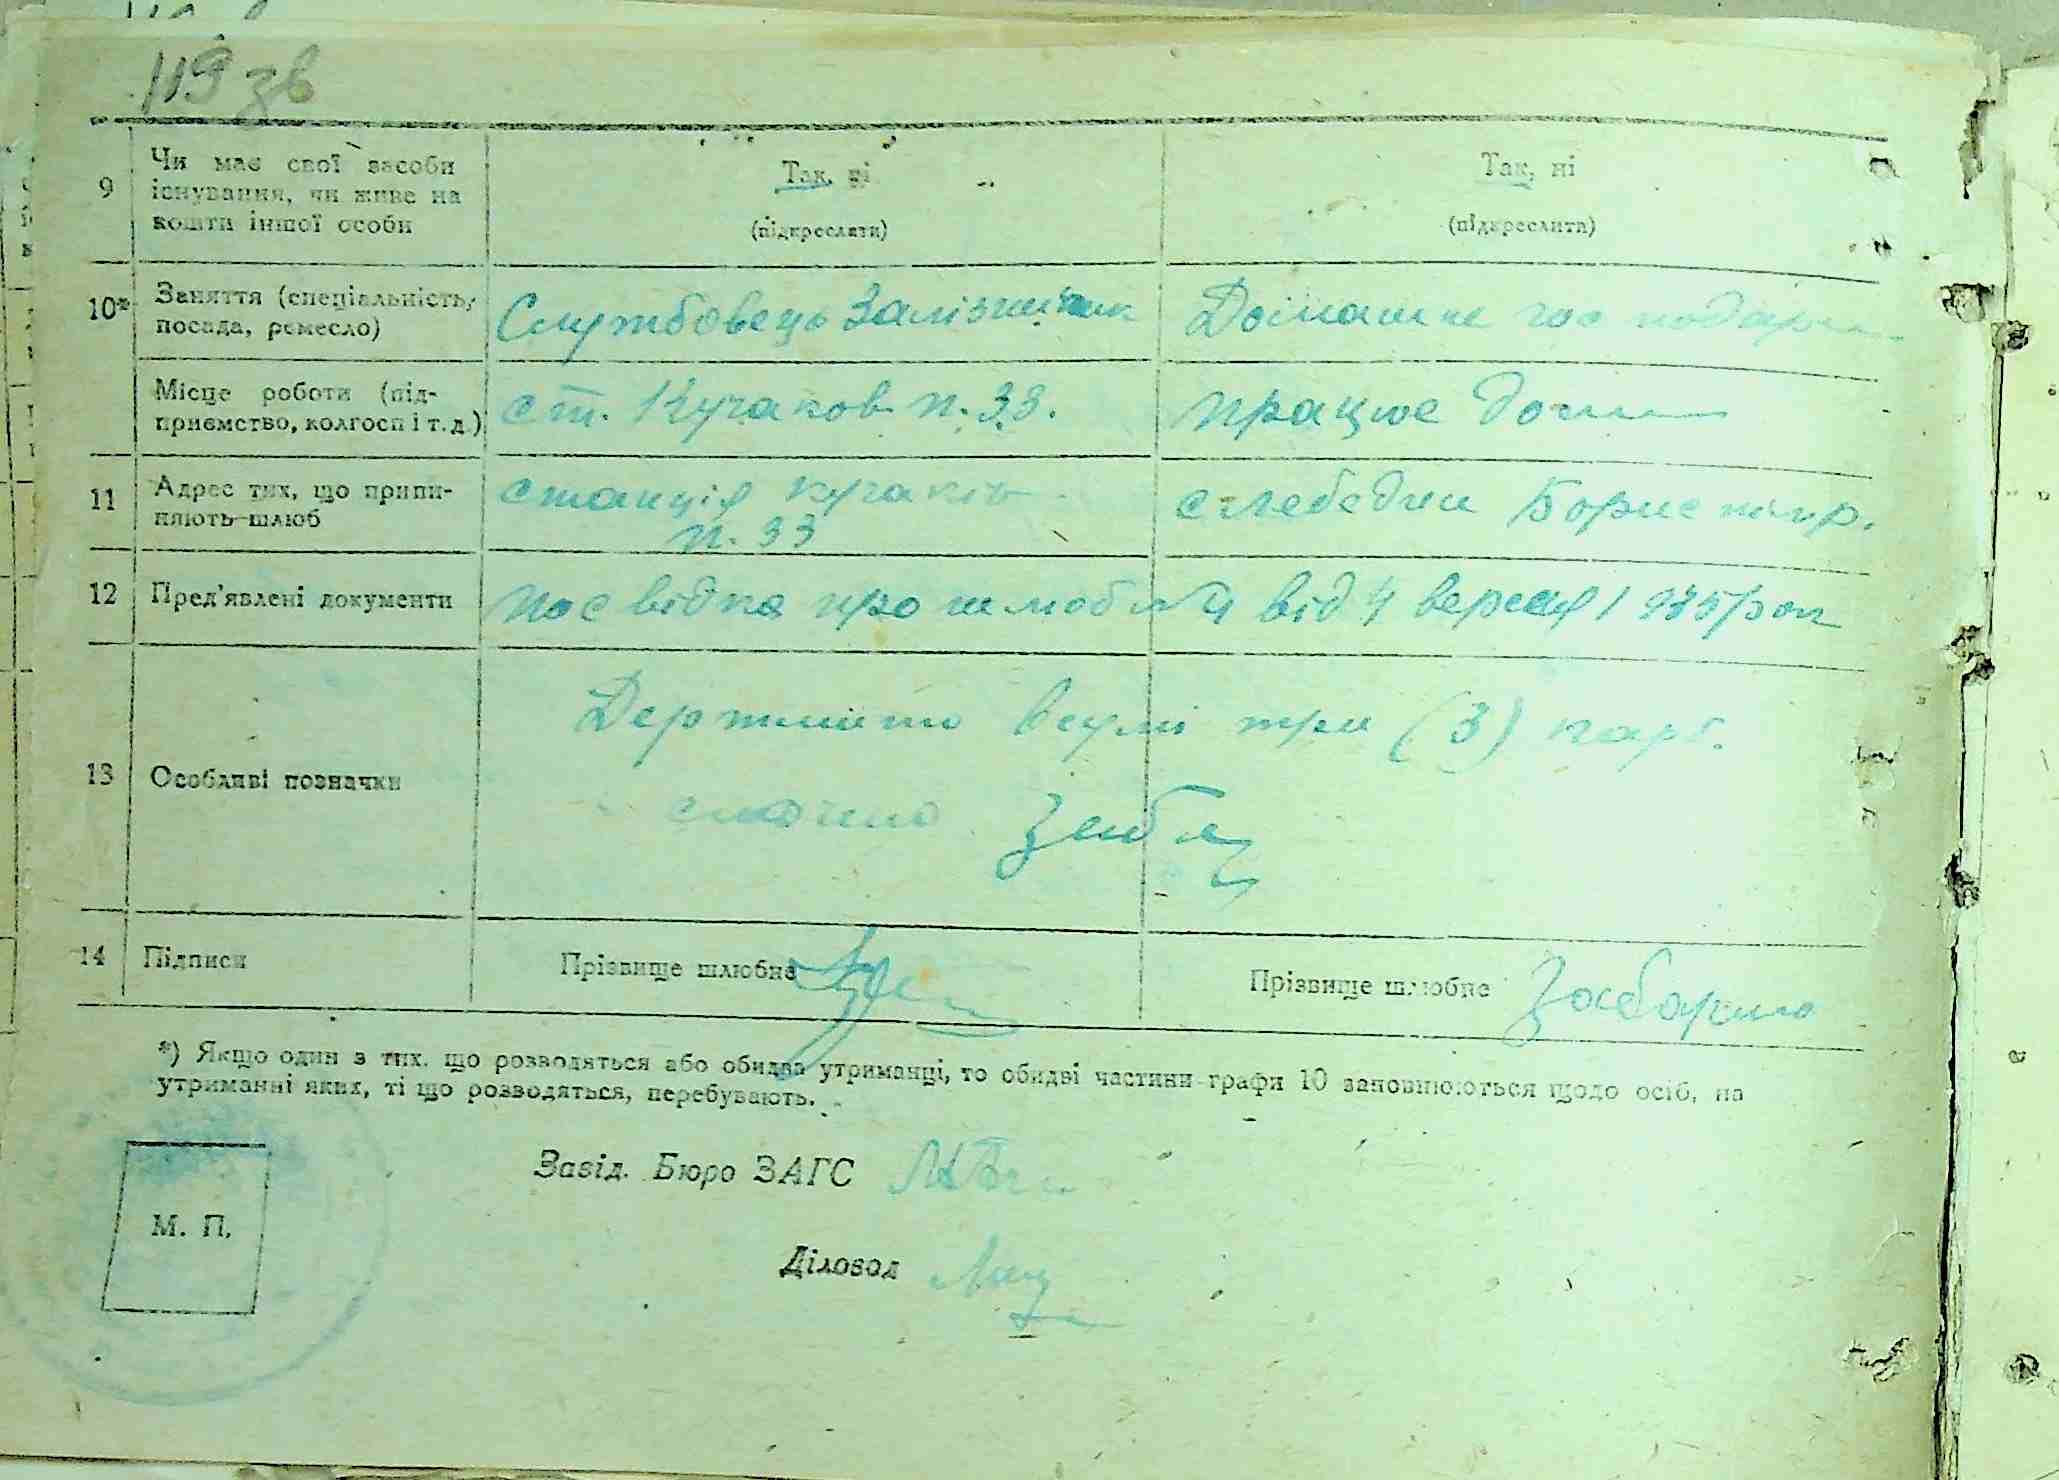 119 зв
9 Чи має свої засоби існування, чи живе на кошти іншої особи
Так, ні
(підкреслити)
Так, ні
(підкреслити)
10* Заняття (спеціальність, посада, ремесло)
Службовець Залізничник
Домашне господарк
Місце роботи (підприємство, колгосп і т. д.)
ст. Кучаков п. 38.
працює дома
11 Адрес тих, що припиняють шлюб
станція кучаків
п. 33
с лебедин Бориспіл р.
12 Пред'явлені документи
посвідка про шлюб №4 від 4 вересня 1935 рок
13 Особливі позначки
Держмито в сумі три (3) карб.
14 Підписи
Прізвище шлюбне
Прізвище шлюбне
*) Якщо один з тих. що розводяться або обидва утриманці, то обидві частини графи 10 заповнюються щодо осіб, на
утриманні яких, ті що розводяться, перебувають.
Завід. Бюро ЗАГС
М. П.
Діловод